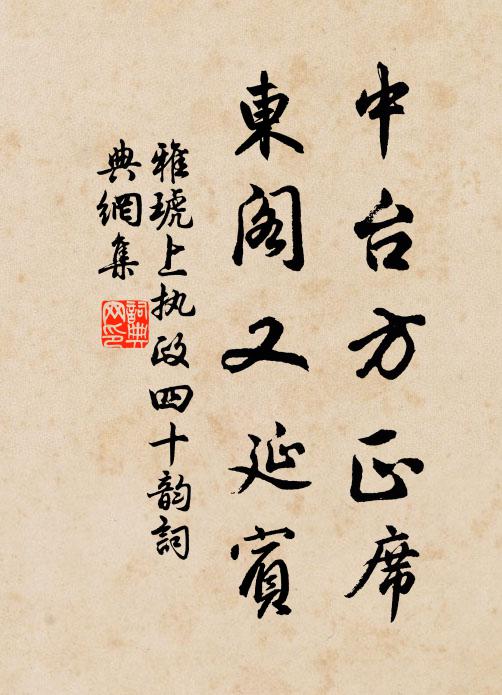 中台方正席
東阁又延賓
雅琥上执政四十韵詞
典網集
詞典网印